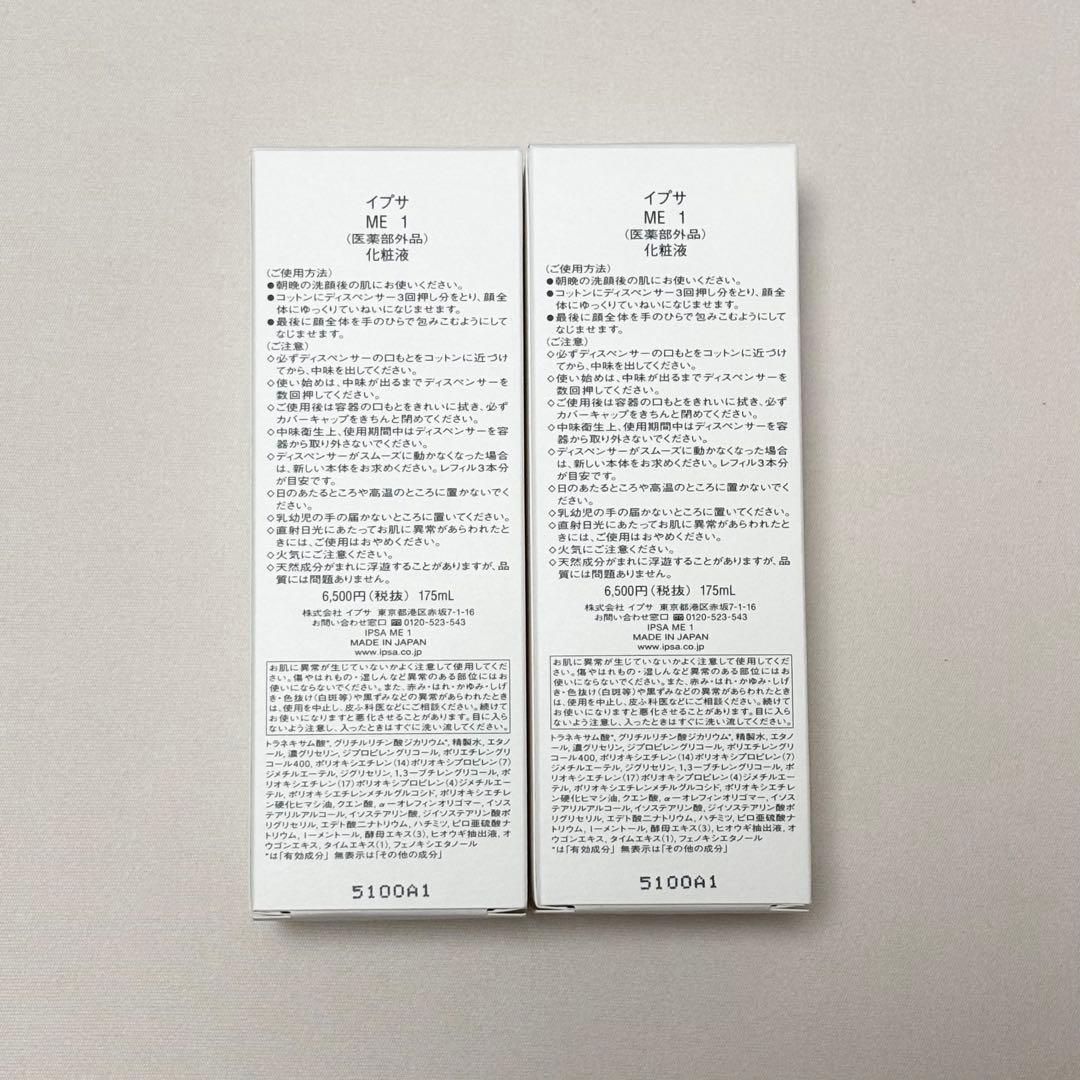 イプサ
ME 1
(医薬部外品)
化粧液
(ご使用方法)
●朝晩の洗顔後の肌にお使いください。
●コットンにディスペンサー3回押し分をとり、顔全
体にゆっくりていねいになじませます。
●最後に顔全体を手のひらで包みこむようにして
なじませます。
(ご注意)
◇必ずディスペンサーの口もとをコットンに近づけ
てから、中味を出してください。
◇使い始めは、中味が出るまでディスペンサーを
数回押してください。
◇ご使用後は容器の口もとをきれいに拭き、必ず
カバーキャップをきちんと閉めてください。
◇中味衛生上、使用期間中はディスペンサーを容
器から取り外さないでください。
◇ディスペンサーがスムーズに動かなくなった場合
は、新しい本体をお求めください。レフィル3本分
が目安です。
◇日のあたるところや高温のところに置かないでく
ださい。
◇乳幼児の手の届かないところに置いてください。
◇直射日光にあたってお肌に異常があらわれたと
きには、ご使用はおやめください。
◇火気にご注意ください。
◇天然成分がまれに浮遊することがありますが、品
質には問題ありません。
6,500円(税抜) 175mL
株式会社 イプサ 東京都港区赤坂7-1-16
お問い合わせ窓口 0120-523-543
IPSA ME 1
MADE IN JAPAN
www.ipsa.co.jp
お肌に異常が生じていないかよく注意して使用してくだ
さい。傷やはれもの・湿しんなど異常のある部位にはお
使いにならないでください。また、赤み・はれ・かゆみ・しげ
き・色抜け(白斑等)や黒ずみなどの異常があらわれたとき
は、使用を中止し、皮ふ科医などにご相談ください。続けて
お使いになりますと悪化させることがあります。目に入ら
ないよう注意し、入ったときはすぐに洗い流してください。
トラネキサム酸*, グリチルリチン酸ジカリウム*, 精製水, エタノ
ール, 濃グリセリン, ジプロピレングリコール, ポリエチレングリ
コール400, ポリオキシエチレン(14)ポリオキシプロピレン(7)
ジメチルエーテル, ジグリセリン, 1,3-ブチレングリコール, ポ
リオキシエチレン(17)ポリオキシプロピレン(4)ジメチルエー
テル, ポリオキシエチレンメチルグルコシド, ポリオキシエチレ
ン硬化ヒマシ油, クエン酸, α-オレフィンオリゴマー, イソス
テアリルアルコール, イソステアリン酸, ジイソステアリン酸ポ
リグリセリル, エデト酸二ナトリウム, ハチミツ, ピロ亜硫酸ナ
トリウム, l-メントール, 酵母エキス(3), ヒオウギ抽出液, オ
ウゴンエキス, タイムエキス(1), フェノキシエタノール
*は「有効成分」 無表示は「その他の成分」
5100A1
イプサ
ME 1
(医薬部外品)
化粧液
(ご使用方法)
●朝晩の洗顔後の肌にお使いください。
●コットンにディスペンサー3回押し分をとり、顔全
体にゆっくりていねいになじませます。
●最後に顔全体を手のひらで包みこむようにして
なじませます。
(ご注意)
◇必ずディスペンサーの口もとをコットンに近づけ
てから、中味を出してください。
◇使い始めは、中味が出るまでディスペンサーを
数回押してください。
◇ご使用後は容器の口もとをきれいに拭き、必ず
カバーキャップをきちんと閉めてください。
◇中味衛生上、使用期間中はディスペンサーを容
器から取り外さないでください。
◇ディスペンサーがスムーズに動かなくなった場合
は、新しい本体をお求めください。レフィル3本分
が目安です。
◇日のあたるところや高温のところに置かないでく
ださい。
◇乳幼児の手の届かないところに置いてください。
◇直射日光にあたってお肌に異常があらわれたと
きには、ご使用はおやめください。
◇火気にご注意ください。
◇天然成分がまれに浮遊することがありますが、品
質には問題ありません。
6,500円(税抜) 175mL
株式会社 イプサ 東京都港区赤坂7-1-16
お問い合わせ窓口 0120-523-543
IPSA ME 1
MADE IN JAPAN
www.ipsa.co.jp
お肌に異常が生じていないかよく注意して使用してくだ
さい。傷やはれもの・湿しんなど異常のある部位にはお
使いにならないでください。また、赤み・はれ・かゆみ・しげ
き・色抜け(白斑等)や黒ずみなどの異常があらわれたとき
は、使用を中止し、皮ふ科医などにご相談ください。続けて
お使いになりますと悪化させることがあります。目に入ら
ないよう注意し、入ったときはすぐに洗い流してください。
トラネキサム酸*, グリチルリチン酸ジカリウム*, 精製水, エタノ
ール, 濃グリセリン, ジプロピレングリコール, ポリエチレングリ
コール400, ポリオキシエチレン(14)ポリオキシプロピレン(7)
ジメチルエーテル, ジグリセリン, 1,3-ブチレングリコール, ポ
リオキシエチレン(17)ポリオキシプロピレン(4)ジメチルエー
テル, ポリオキシエチレンメチルグルコシド, ポリオキシエチレ
ン硬化ヒマシ油, クエン酸, α-オレフィンオリゴマー, イソス
テアリルアルコール, イソステアリン酸, ジイソステアリン酸ポ
リグリセリル, エデト酸二ナトリウム, ハチミツ, ピロ亜硫酸ナ
トリウム, l-メントール, 酵母エキス(3), ヒオウギ抽出液, オ
ウゴンエキス, タイムエキス(1), フェノキシエタノール
*は「有効成分」 無表示は「その他の成分」
5100A1